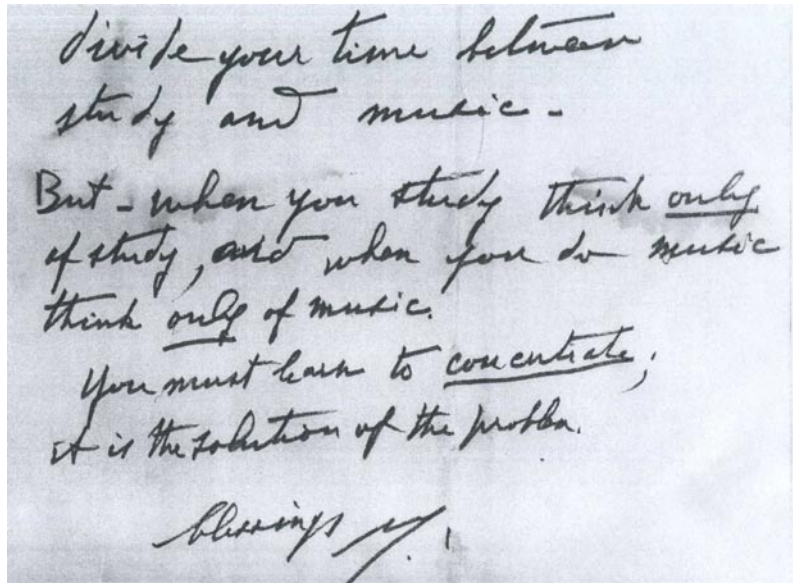 divide your time between
study and music -
But - when you study think only
of study, and when you do music
think only of music.
You must learn to concentrate;
it is the solution of the problem.
blessings